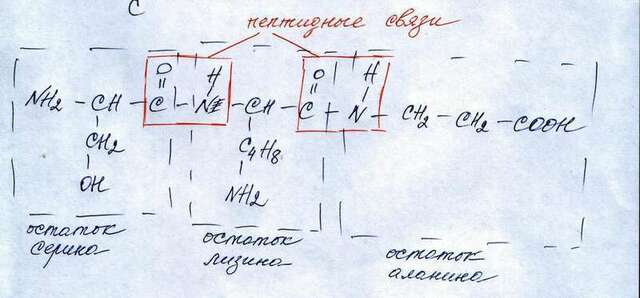 С
пептидные связи
O H O H
NH2 - CH - C - N - CH - C - N - CH2 - CH2 - COOH
CH2 C4H8
OH NH2
остаток серина
остаток лизина
остаток аланина